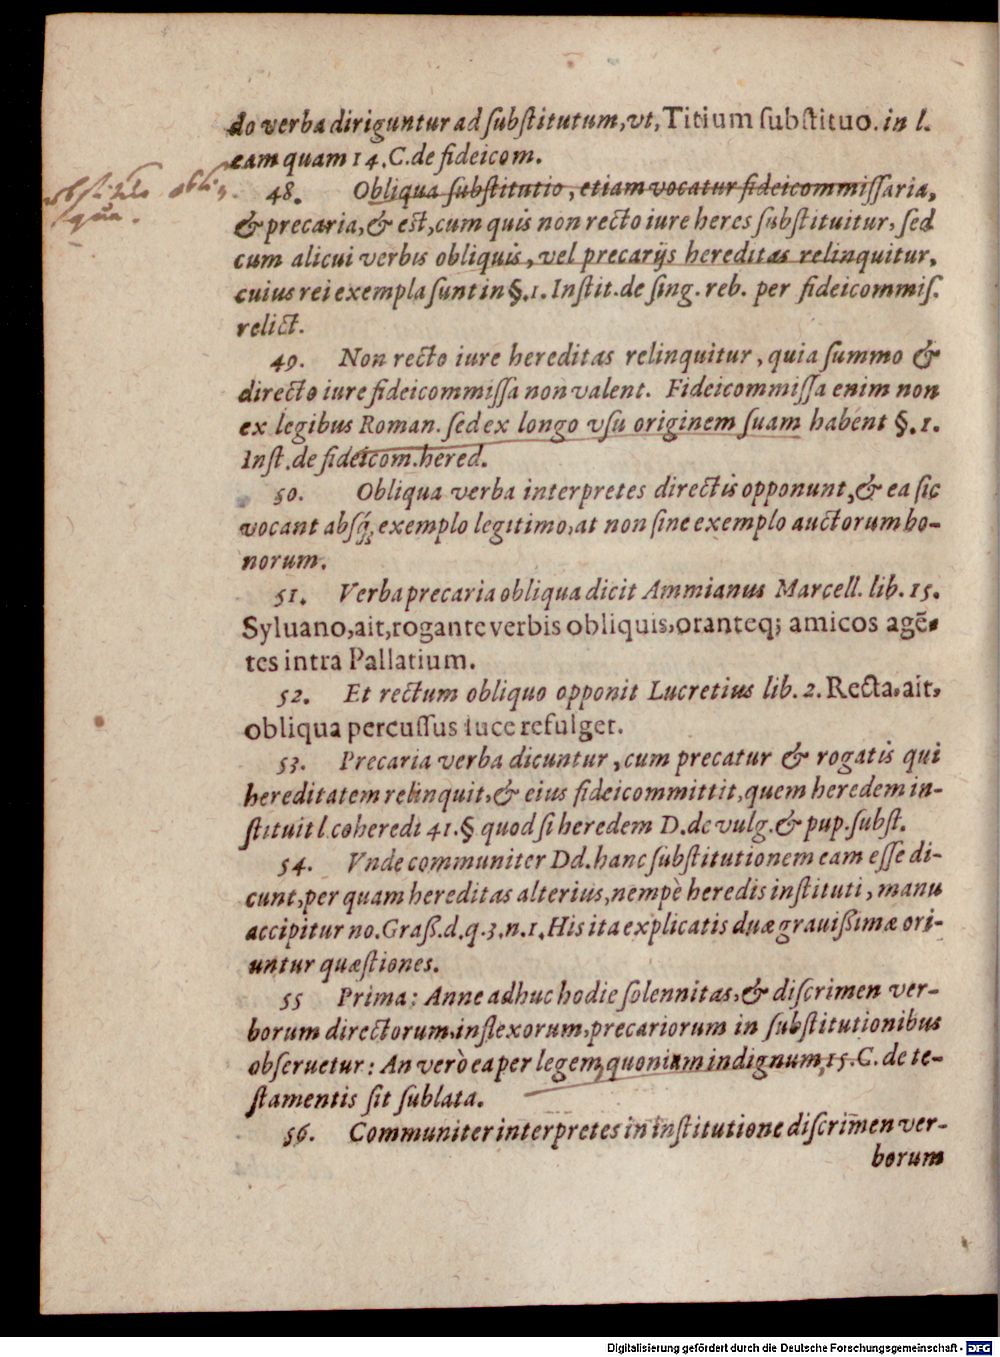 do verba diriguntur ad ſubſtitutum, vt, Titium ſubſtituo. in l.
eam quam 14. C. de fideicom.
48. Obliqua ſubſtitutio, etiam vocatur fideicommiſſaria,
& precaria, & est, cum quis non recto iure heres ſubſtituitur, ſed
cum alicui verbis obliquis, vel precarijs hereditas relinquitur,
cuius rei exempla ſunt in §. 1. Inſtit. de ſing. reb. per fideicommiſ.
relict.
49. Non recto iure hereditas relinquitur, quia ſummo &
directo iure fideicommiſſa non valent. Fideicommiſſa enim non
ex legibus Roman. ſed ex longo vſu originem ſuam habent §. 1.
Inſt. de fideicom. hered.
50. Obliqua verba interpretes directis opponunt, & ea ſic
vocant abſq́; exemplo legitimo, at non ſine exemplo auctorum bo-
norum.
51. Verba precaria obliqua dicit Ammianus Marcell. lib. 15.
Syluano, ait, rogante verbis obliquis, oranteq; amicos agẽ-
tes intra Pallatium.
52. Et rectum obliquo opponit Lucretius lib. 2. Recta, ait,
obliqua percuſſus luce refulget.
53. Precaria verba dicuntur, cum precatur & rogatis qui
hereditatem relinquit, & eius fideicommittit, quem heredem in-
ſtituit l. coheredi 41. § quod ſi heredem D. de vulg. & pup. ſubſt.
54. Vnde communiter Dd. hanc ſubſtitutionem eam eſſe di-
cunt, per quam hereditas alterius, nempè heredis inſtituti, manu
accipitur no. Graß. d. q. 3. n. 1. His ita explicatis duæ grauißimæ ori-
untur quæſtiones.
55 Prima: Anne adhuc hodie ſolennitas, & diſcrimen ver-
borum directorum, inflexorum, precariorum in ſubſtitutionibus
obſeruetur: An verò ea per legem, quoniam indignum, 15. C. de te-
ſtamentis ſit ſublata.
56. Communiter interpretes in inſtitutione diſcrimen ver-
borum
Digitalisierung gefördert durch die Deutsche Forschungsgemeinschaft - DFG